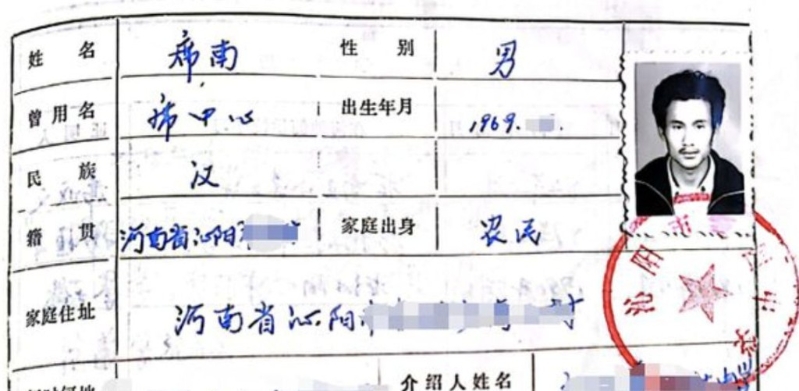 姓名 席南 性别 男
曾用名 席中心 出生年月 1969.
民族 汉
籍贯 河南省沁阳 家庭出身 农民
家庭住址 河南省沁阳市 村
介绍人姓名
沁阳市